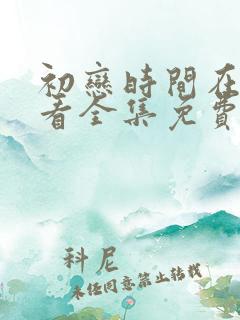 初戀時間在
看全集免費
科尼
未任同意禁止转载